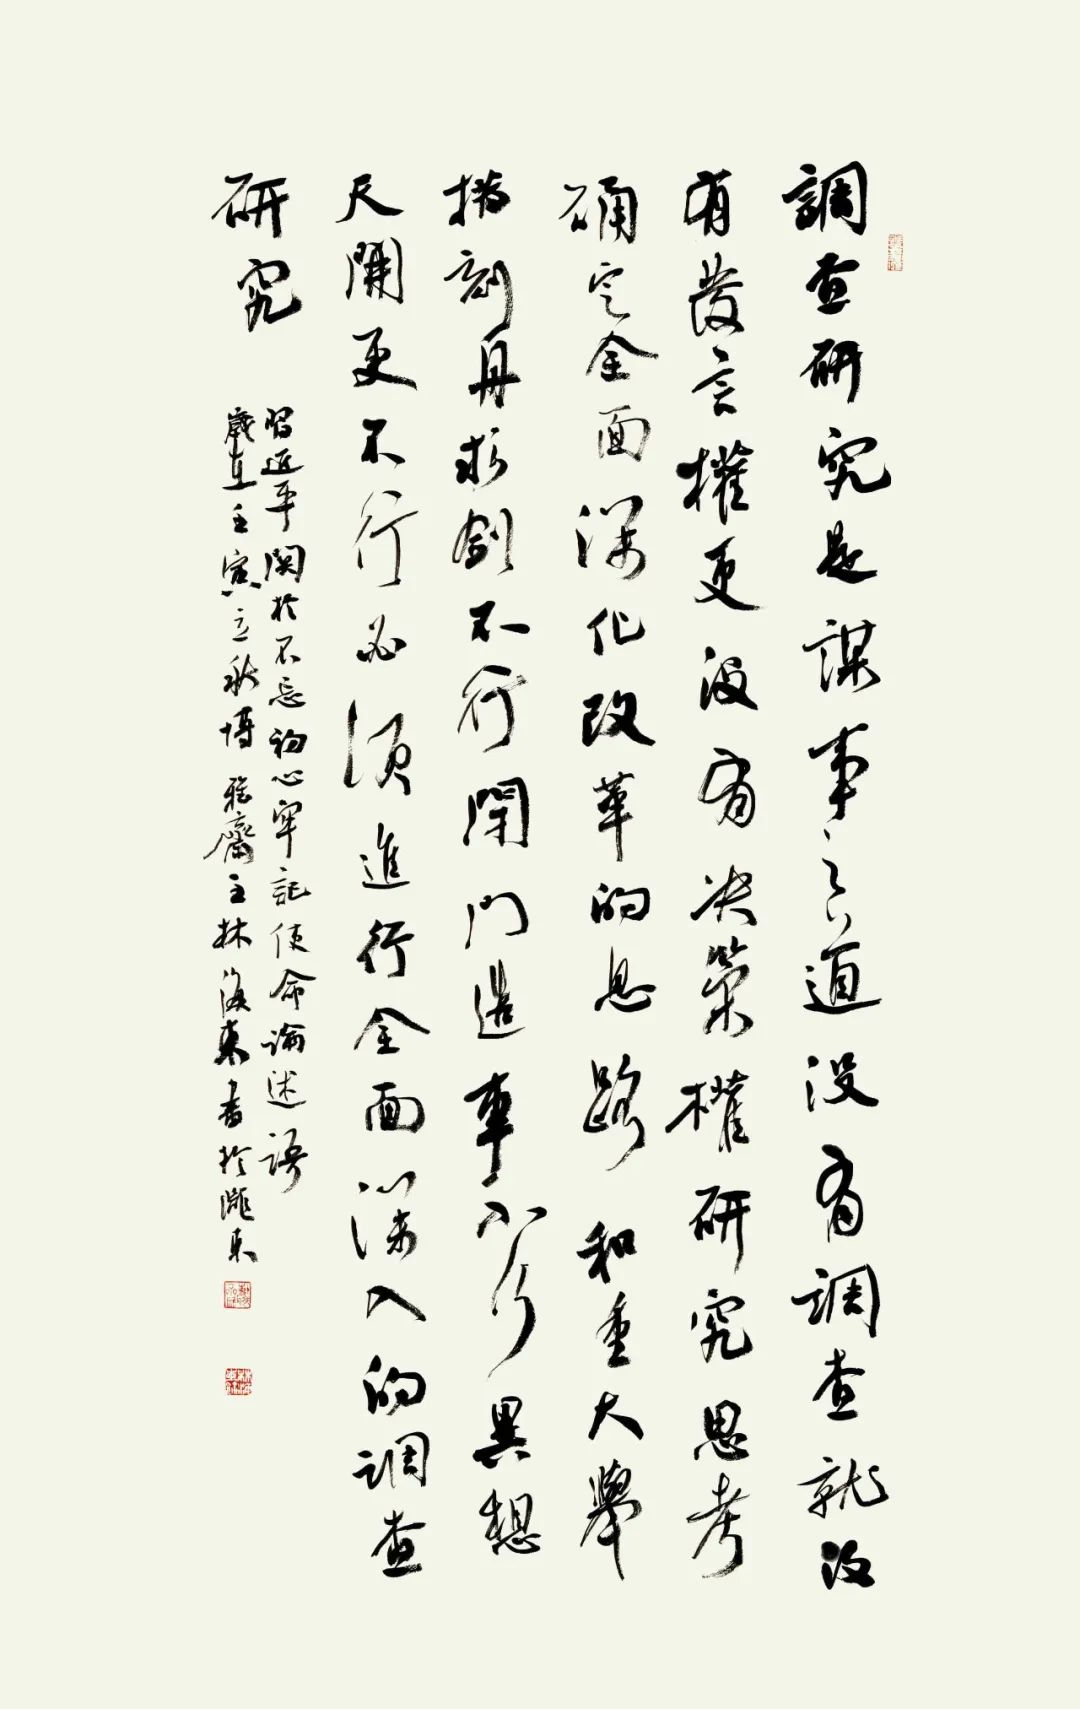 調查研究是謀事之道没有調查就没
有發言權更没有决策權研究思考
確定全面深化改革的思路和重大舉
措刻舟求劍不行閉門造車不行異想
天開更不行必須進行全面深入的調查
研究
習近平關於不忘初心牢記使命論述語
歲在壬寅立秋博雅齋主林海東書於隴東